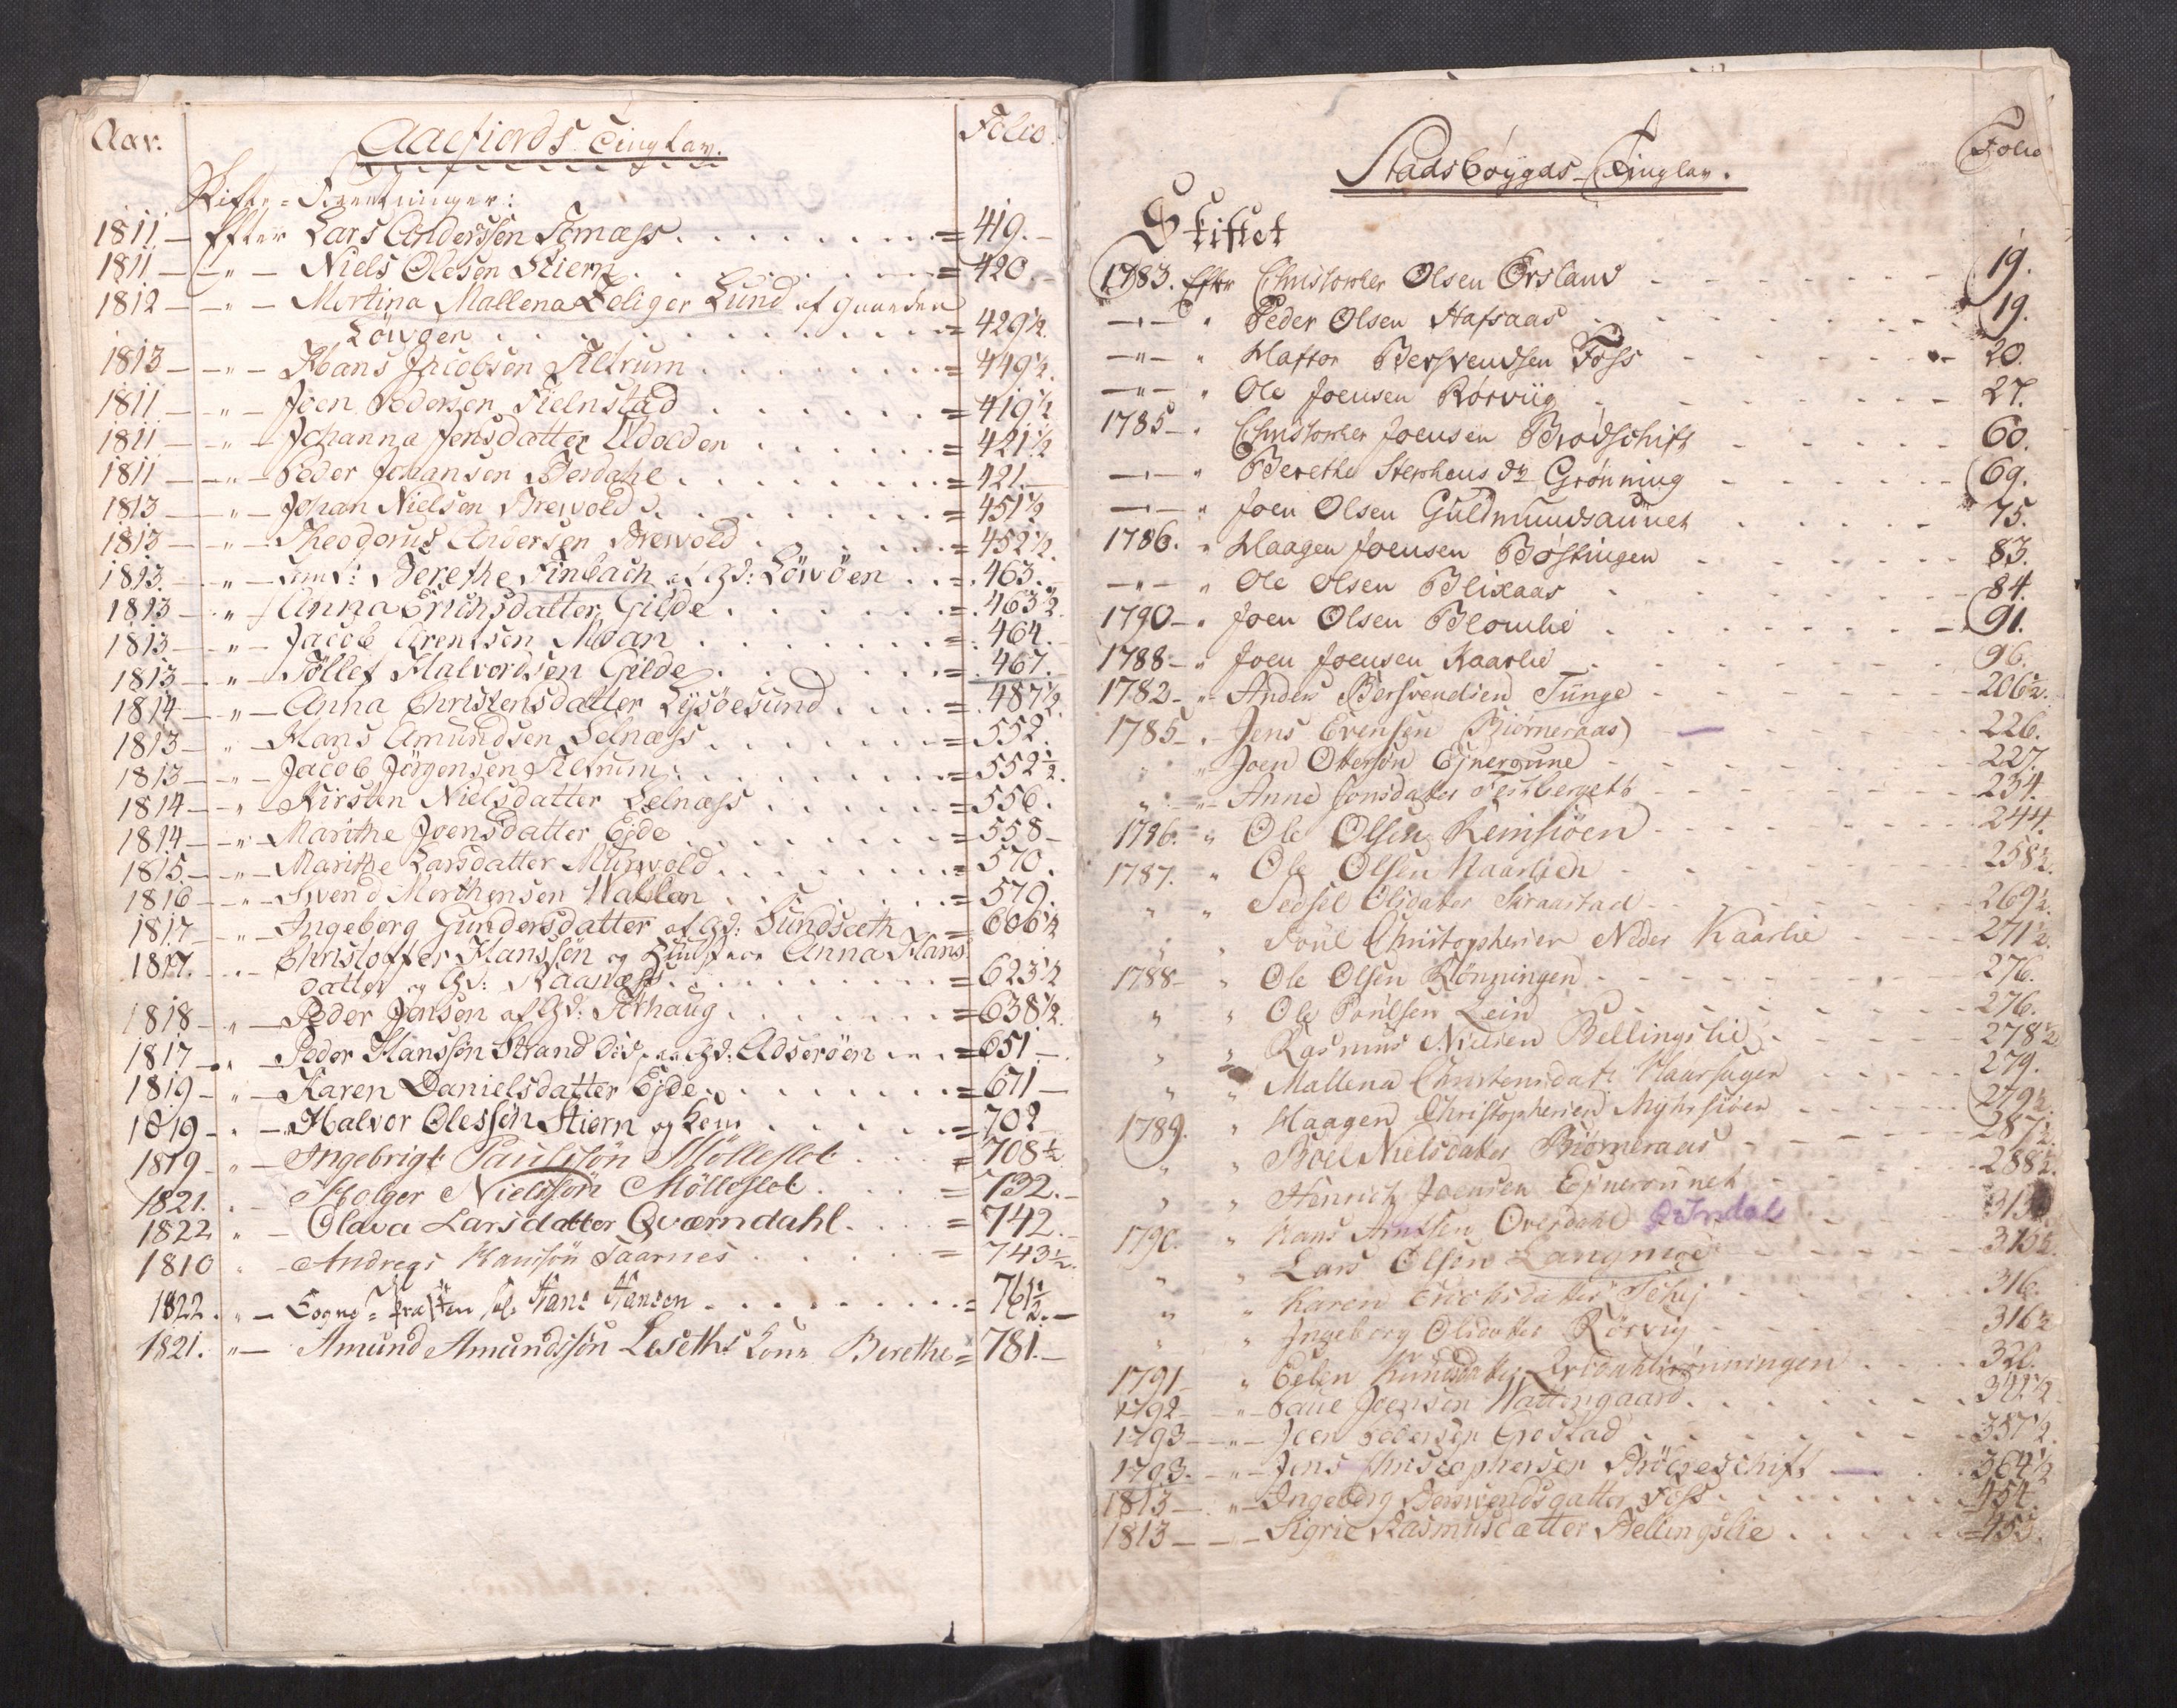 Aar.
Aaefiords Tinglav.
Folio.
Skifte=Forretninger:
1811 — Efter Lars Anderssen Somæss . . . = 419. —
1811 — „ — Niels Olesen Stiern . . . = 420. —
1812 — „ — Mortina Mallena Zeliger Lund af gaarden
Löwöen . . . = 429½.
1813 — „ — Hans Jacobsen Fietrum . . . = 449½.
1811 — „ — Joen Pedersen Fielnstad . . . = 419½
1811 — „ — Johanna Jensdatter Udolden . . . = 421½
1811 — „ — Peder Johansen Berdahl . . . = 421. —
1813 — „ — Johan Nielsen Brewold . . . = 451½
1813 — „ — Theodorus Andersen Brewold . . . = 452½.
1813. — „ — Berethe Finbach af Gd: Löwöen . . = 463. —
1813 — „ — Anna Erichsdatter Gilde . . . = 463½
1813 — „ — Jacob Arentsen Moan . . . = 464. —
1813 — „ — Töllef Halvorsen Gilde . . . = 467.
1814 — „ — Anna Christensdatter Lysöesund . . . = 487½.
1813 — „ — Hans Amundsen Selnæss . . . = 552.
1813 — „ — Jacob Jörgensen Fietrum . . . = 552½.
1814 — „ — Kirsten Nielsdatter Selnæss . . . = 556.
1814 — „ — Marithe Joensdatter Eide . . . = 558 —
1815. — „ — Marithe Larsdatter Murvold . . . = 570.
1816 — „ — Svend Morthensen Wallen . . . = 579.
1817 — „ — Ingeborg Gundersdatter af Gd: Sundsæth = 606½
1817. — „ — Christoffer Hanssön og Hustrue Anna Hans
datter og Gd: Raanæss . . . = 623½
1818 — „ — Peder Jensen af Gd: Forhaug . . . = 638½
1817 — „ — Peder Hanssön Strand Gd: Adseröen . . = 651 —
1819 — „ — Karen Danielsdatter Eide . . . = 671 —
1819 — „ — Halvor Olessön Stiern og Kone . . . = 702
1819 — „ — Ingebrigt Paulssön Mölleslet . . . = 708½
1821. „ — Holger Nielssön Mölleslet . . . = 732. —
1822 „ — Olava Larsdatter Qværndahl . . . = 742. —
1810 „ — Andreas Hanssön Taarnes . . . = 743½.
1822. „ — Sogne=Præsten Hans Hansen . . . = 761½. —
1821. „ — Amund Amundssön Leseths Kone Berethe = 781. —
Folio
Stadsbøygds Tinglav.
Skiftet
1783. Efter Christopher Olsen Ørsland . . . 19.
— „ — „ Peder Olsen Hafsaas . . . 19.
— „ — „ Haftor Bersvendsen Foss . . . 20.
— „ — „ Ole Joensen Rørviig . . . 27.
1785 — „ Christopher Joensen Brødschift . . . 60.
— „ — „ Berethe Stephens dr Grønning . . . 69.
— „ — „ Joen Olsen Guldmundsaunet . . . 75.
1786. „ Haagen Joensen Bøstingen . . . 83.
— „ — „ Ole Olsen Blixaas . . . 84.
1790 — „ Joen Olsen Blomlie . . . 91.
1788 — „ Joen Joensen Kaarlie . . . 96.
1782 — „ Anders Bersvendsen Tunge . . . 206½.
1785 — „ Jens Evensen Biørneraas . . . 226.
„ „ Joen Ottersøn Ejneraune . . . 227.
„ „ Anne Jonsdatter Festberget . . . 234.
1786. „ Ole Olsen Reinsiøen . . . 244.
1787. „ Ole Olsen Kaarlien . . . 258½.
„ „ Sedsel Olsdatter Skraastad . . . 269½.
„ „ Poul Christophersen Neder Kaarlie . . . 271½.
1788 — „ Ole Olsen Rönningen . . . 276.
„ „ Ole Poulsen Lein . . . 276.
„ „ Rasmus Nielsen Bellingslie . . . 278½
„ „ Mallena Christensdatr Haarsagen . . . 279.
1789. „ Haagen Christophersen Myhrsiøen . . . 279½.
„ „ Boel Nielsdatter Biørneraas . . . 287½.
„ „ Hinrich Joensen Ejneraunet . . . 288½.
1790. „ Hans Arntsen Overdahl . . .
„ „ Lars Olsen Langmoe . . . 315½.
„ „ Karen Erichsdatter . . . 316.
„ „ Ingeborg Olsdatter Rörvig . . . 316½
1791 „ Eelen Knudsdatter . . . 326.
1792 — „ — Paul Joensen Wattengaard . . . 342½
1793 — „ — Joen Pedersen Grøstad . . . 357½.
1793. — „ — Jens Christophersen Brödreschift . . . 364½
1813 — „ — Ingeborg Berswendsdatter Foss . . . 454.
1813 — „ — Sigrie Rasmusdatter Bellingslie . . . = 455.